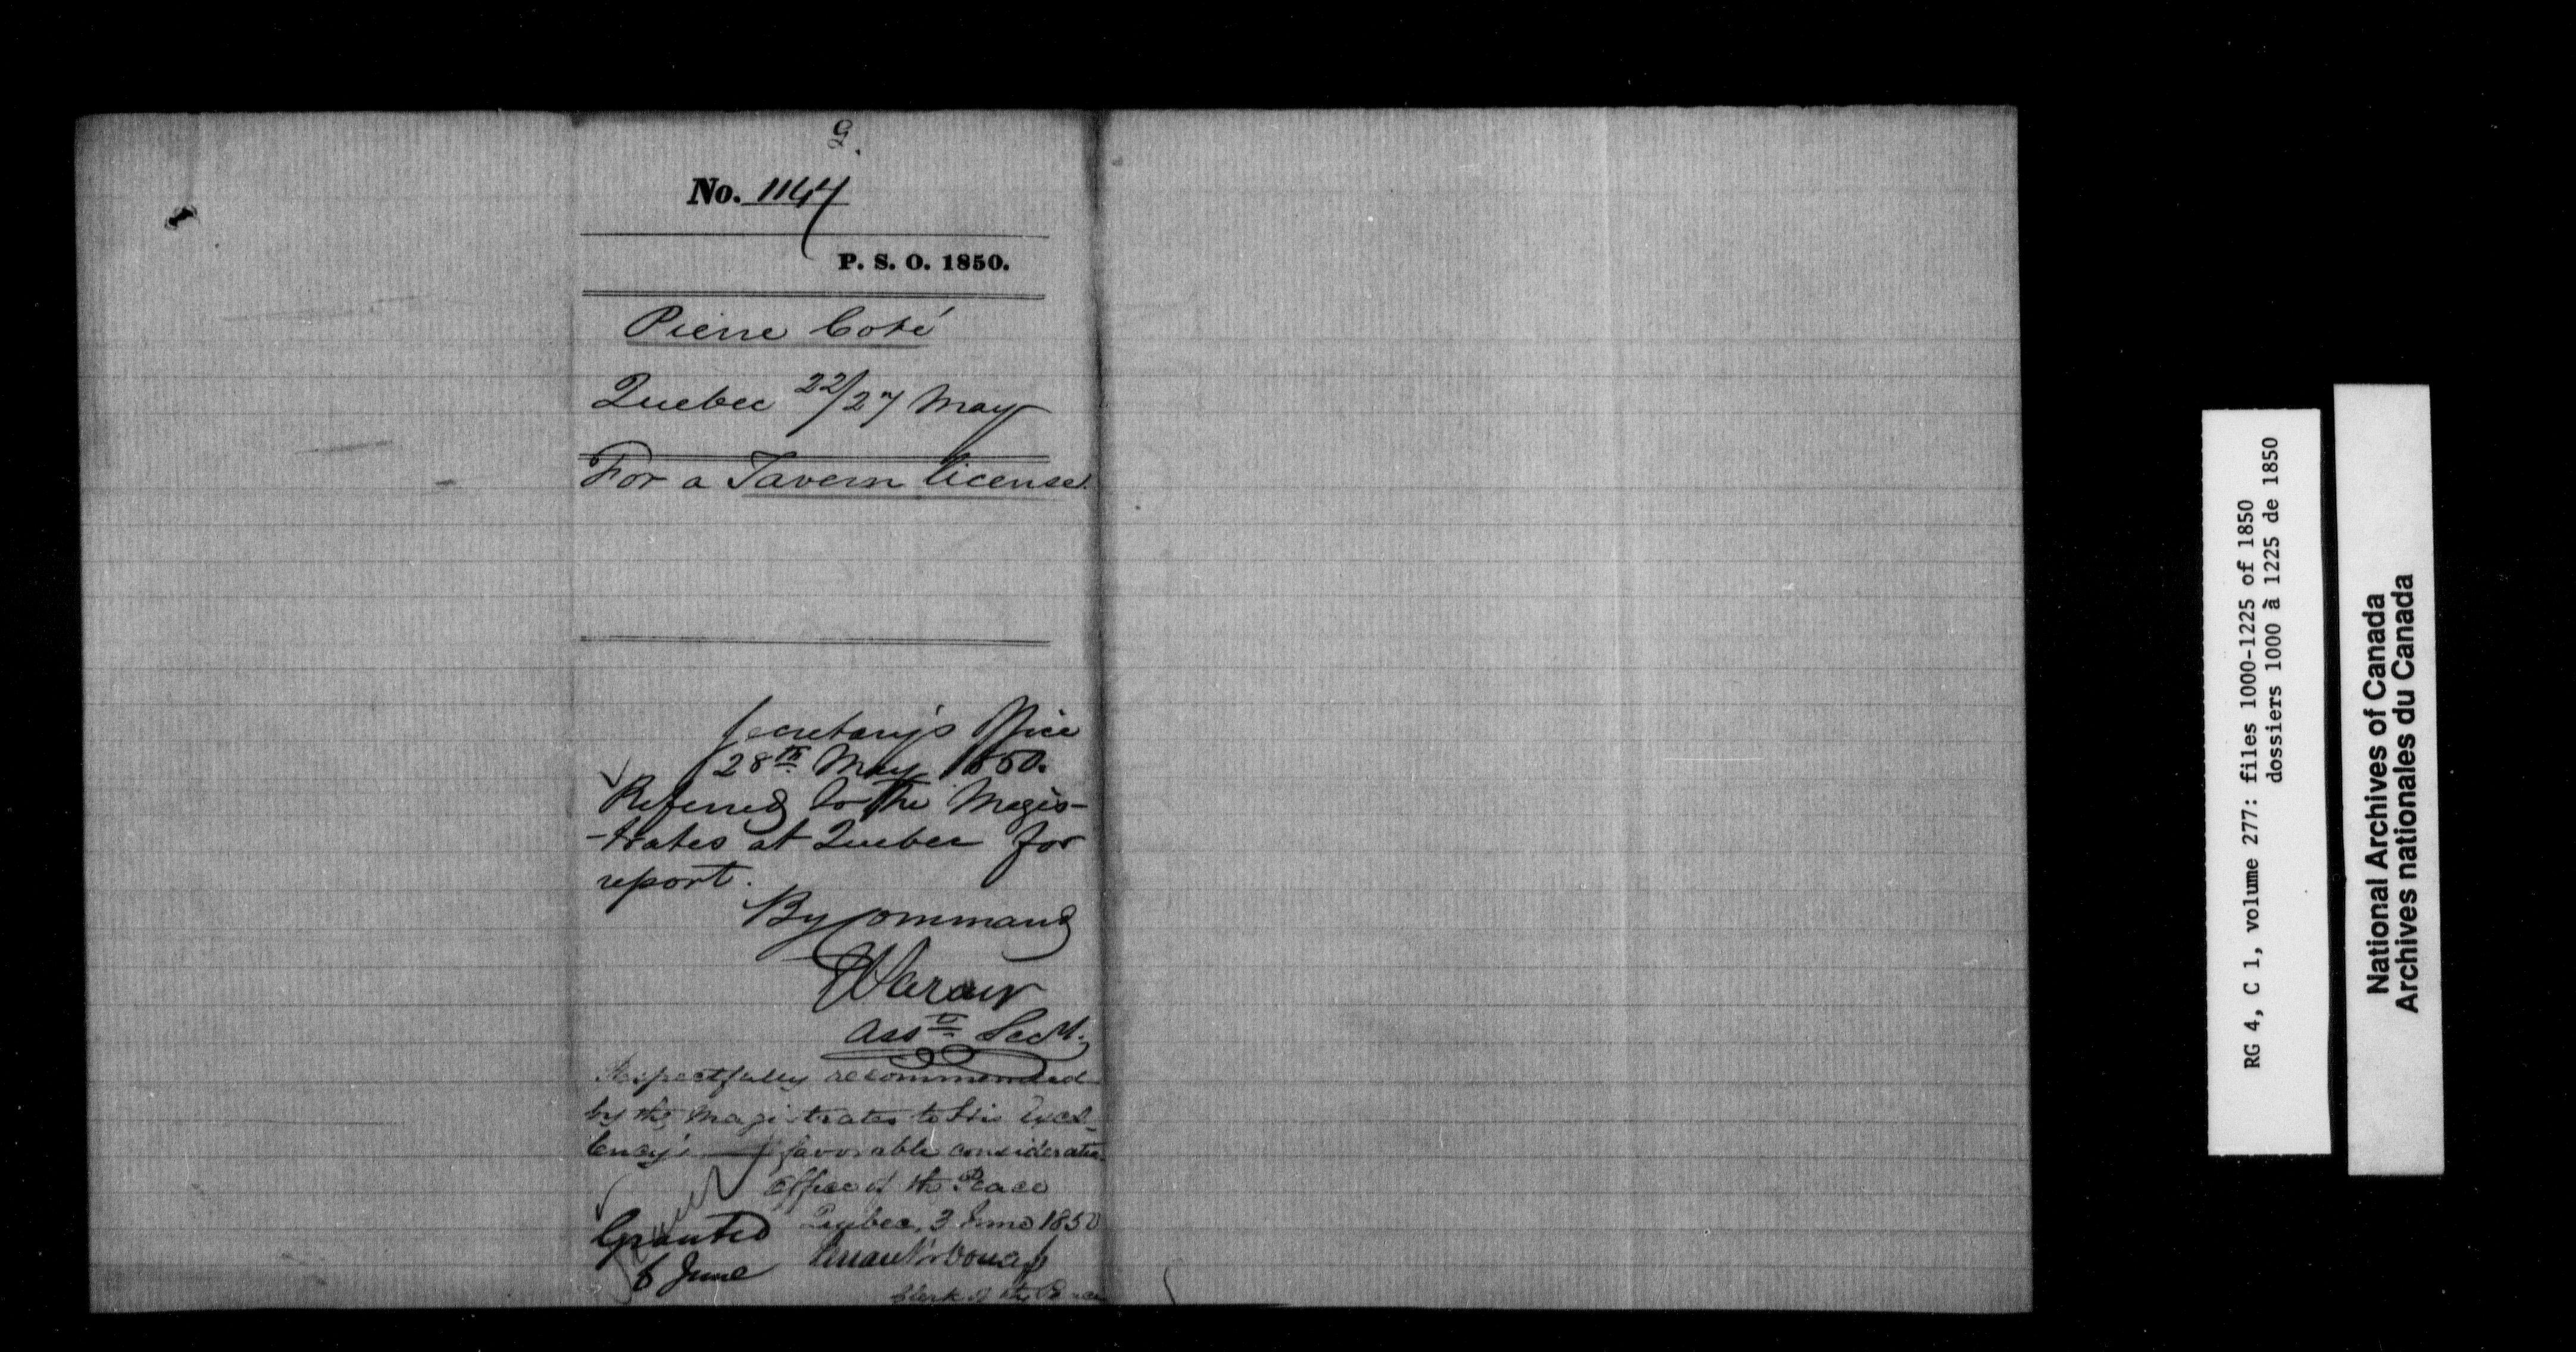 No. 1144
P. S. O. 1850.
Pierre Coté
Quebec 22/27 May
For a Tavern license.
Secretary's Office
28th May 1850.
Referred to the Magis-
-trates at Quebec for
report.
By Command
Asst Secy.
Respectfully recommended
by the Magistrates to His Excel-
lency's favorable consideration
Office of the Peace
Quebec, 3 June 1850
Granted
6 June
Clerk of the Peace
RG 4, C 1, volume 277: files 1000-1225 of 1850
dossiers 1000 à 1225 de 1850
National Archives of Canada
Archives nationales du Canada